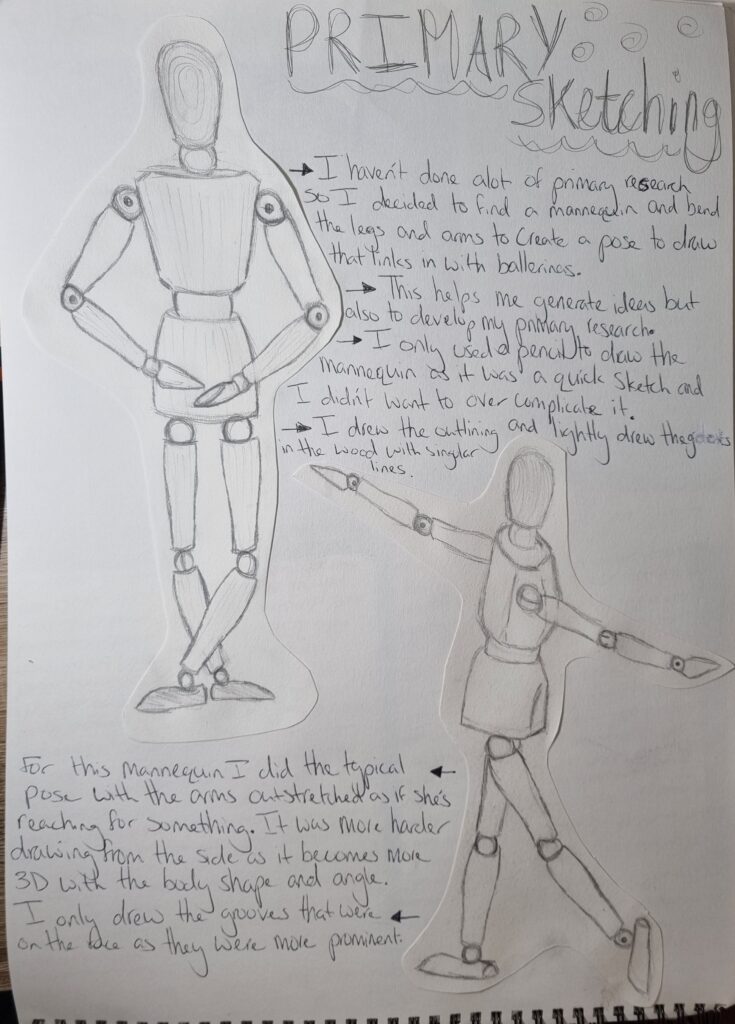 PRIMARY
Sketching
→ I haven't done alot of primary research
so I decided to find a mannequin and bend
the legs and arms to create a pose to draw
that links in with ballerinas.
→ This helps me generate ideas but
also to develop my primary research.
→ I only used pencil to draw the
mannequin as it was a quick sketch and
I didn't want to over complicate it.
→ I drew the outlining and lightly drew the
in the wood with singular
lines.
For this mannequin I did the typical ←
pose with the arms outstretched as if she's
reaching for something. It was more harder
drawing from the side as it becomes more
3D with the body shape and angle.
I only drew the grooves that were ←
on the face as they were more prominent.